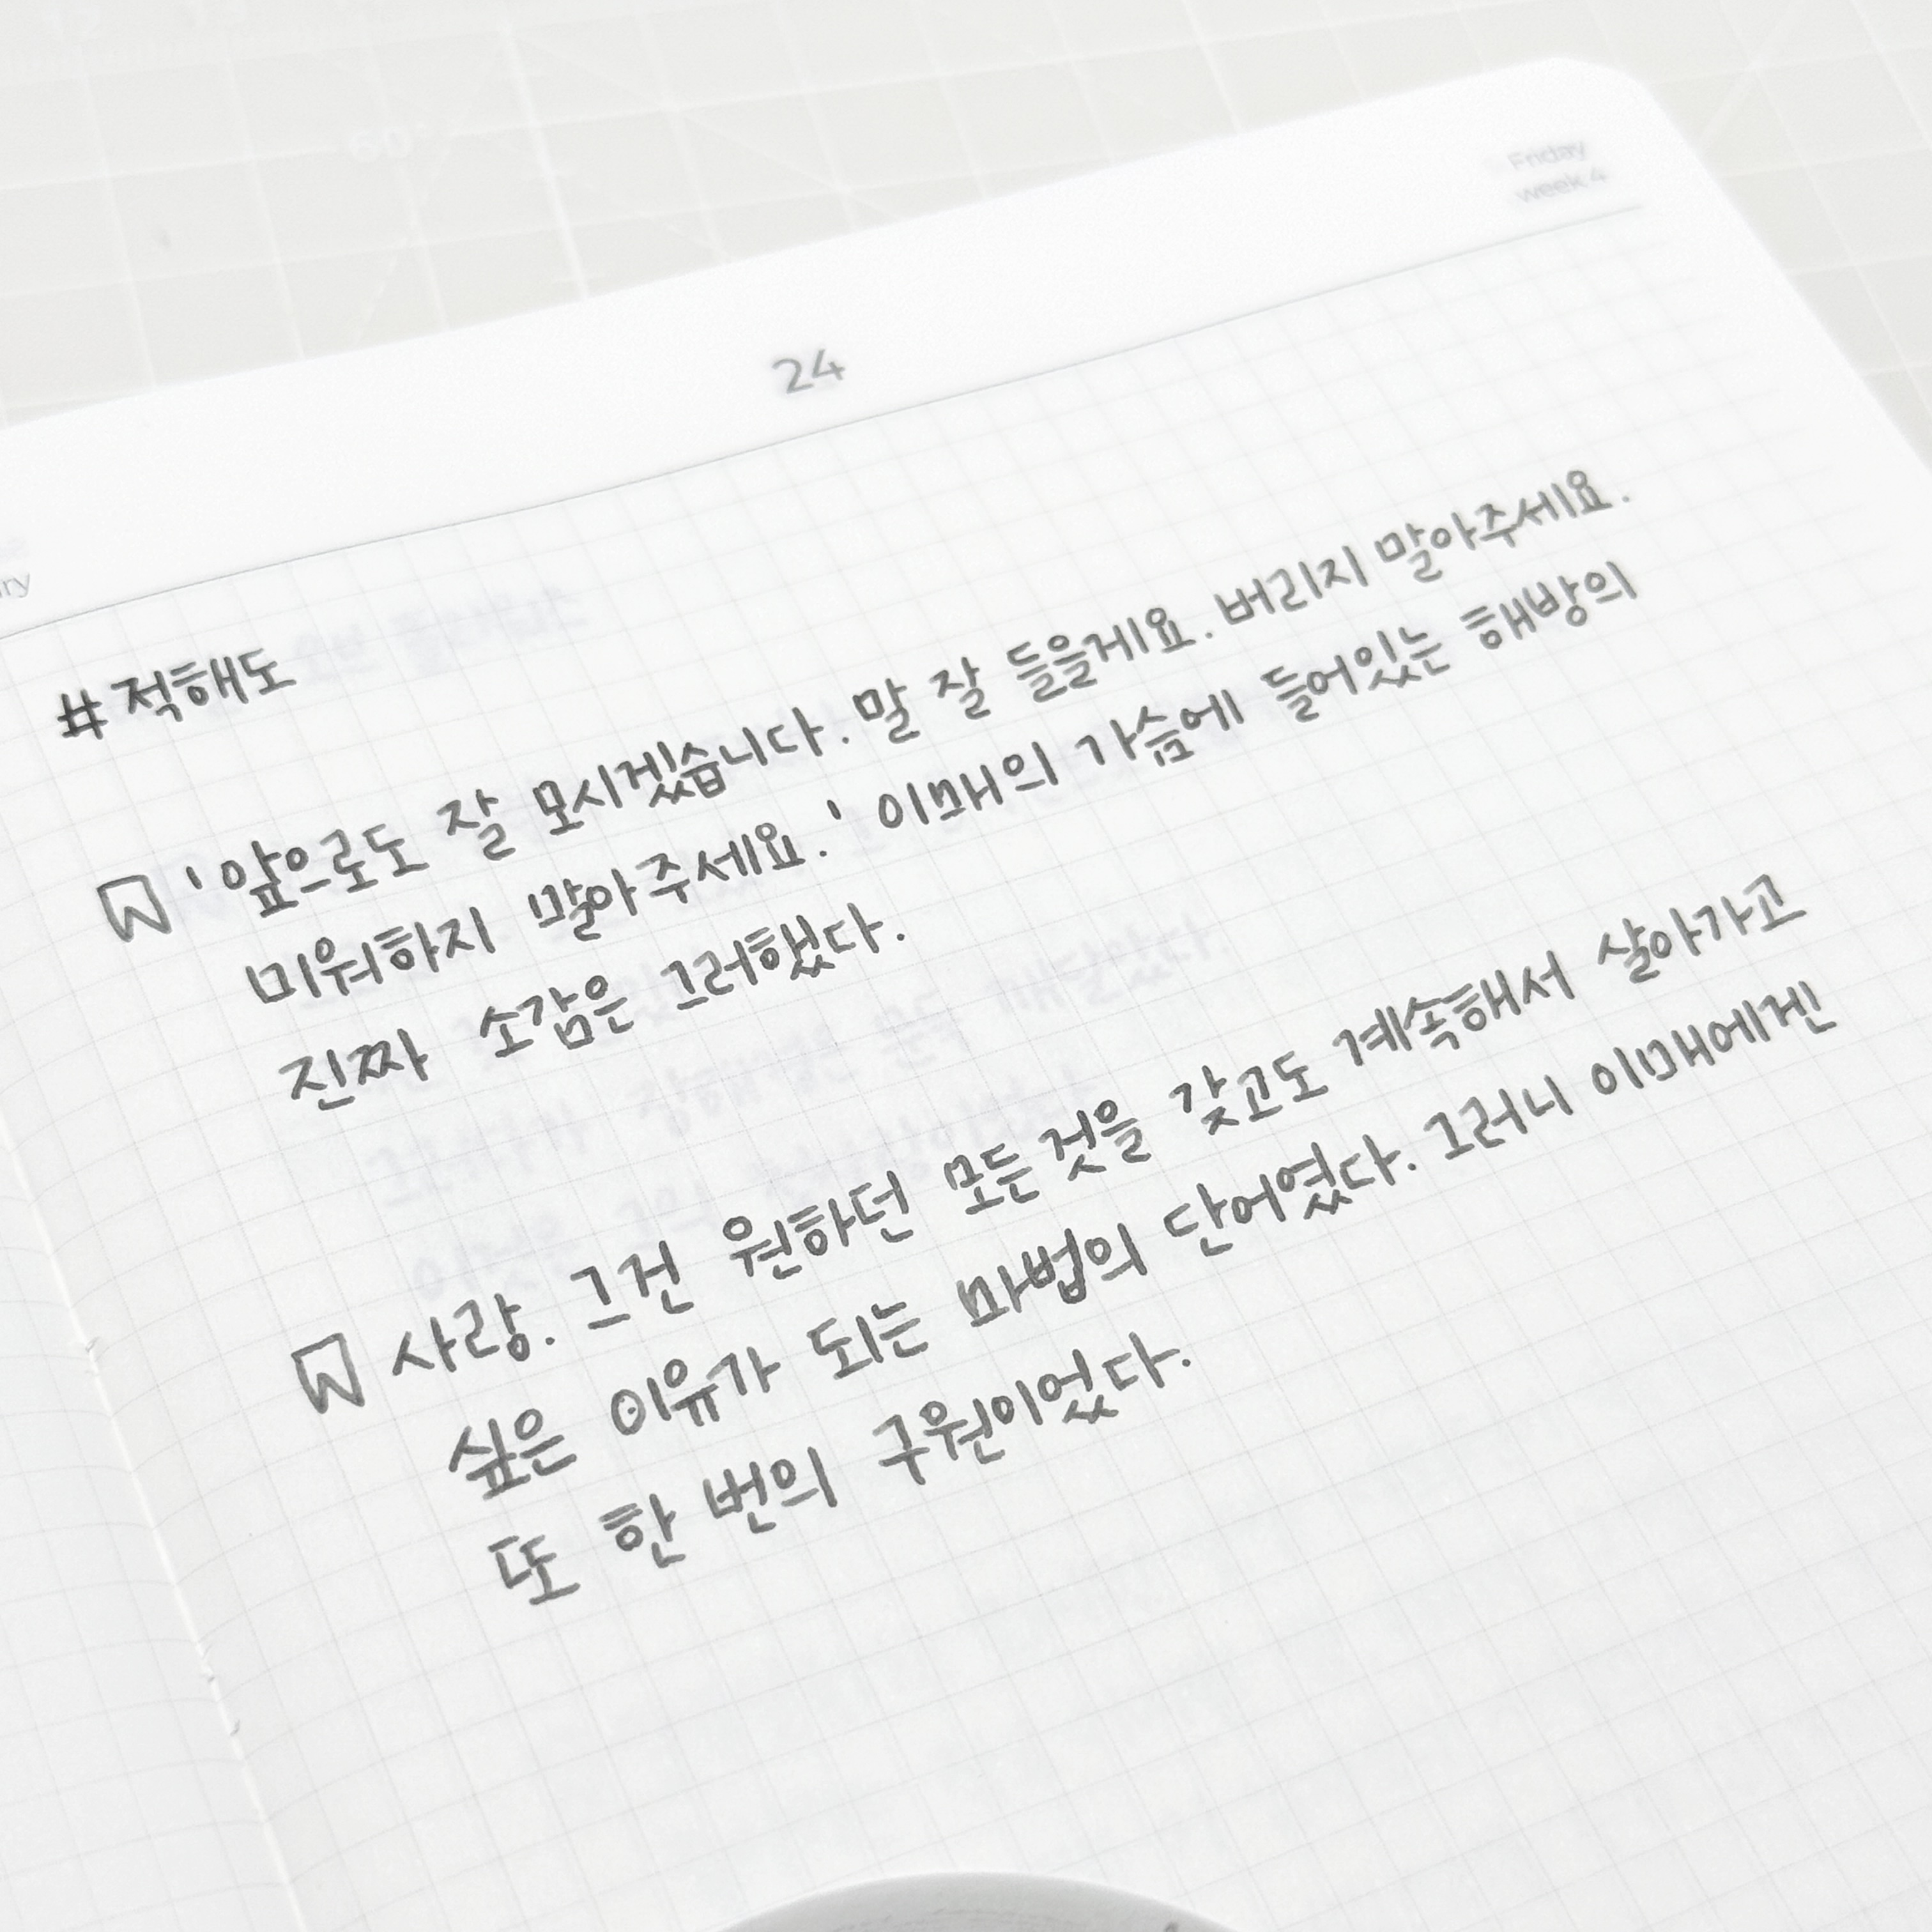 Friday
week 4
24
ry
#적해도
'앞으로도 잘 모시겠습니다. 말 잘 들을게요. 버리지 말아주세요.
미워하지 말아주세요.' 이매의 가슴에 들어있는 해방의
진짜 소감은 그러했다.
사랑. 그건 원하던 모든 것을 갖고도 계속해서 살아가고
싶은 이유가 되는 마법의 단어였다. 그러니 이매에겐
또 한 번의 구원이었다.